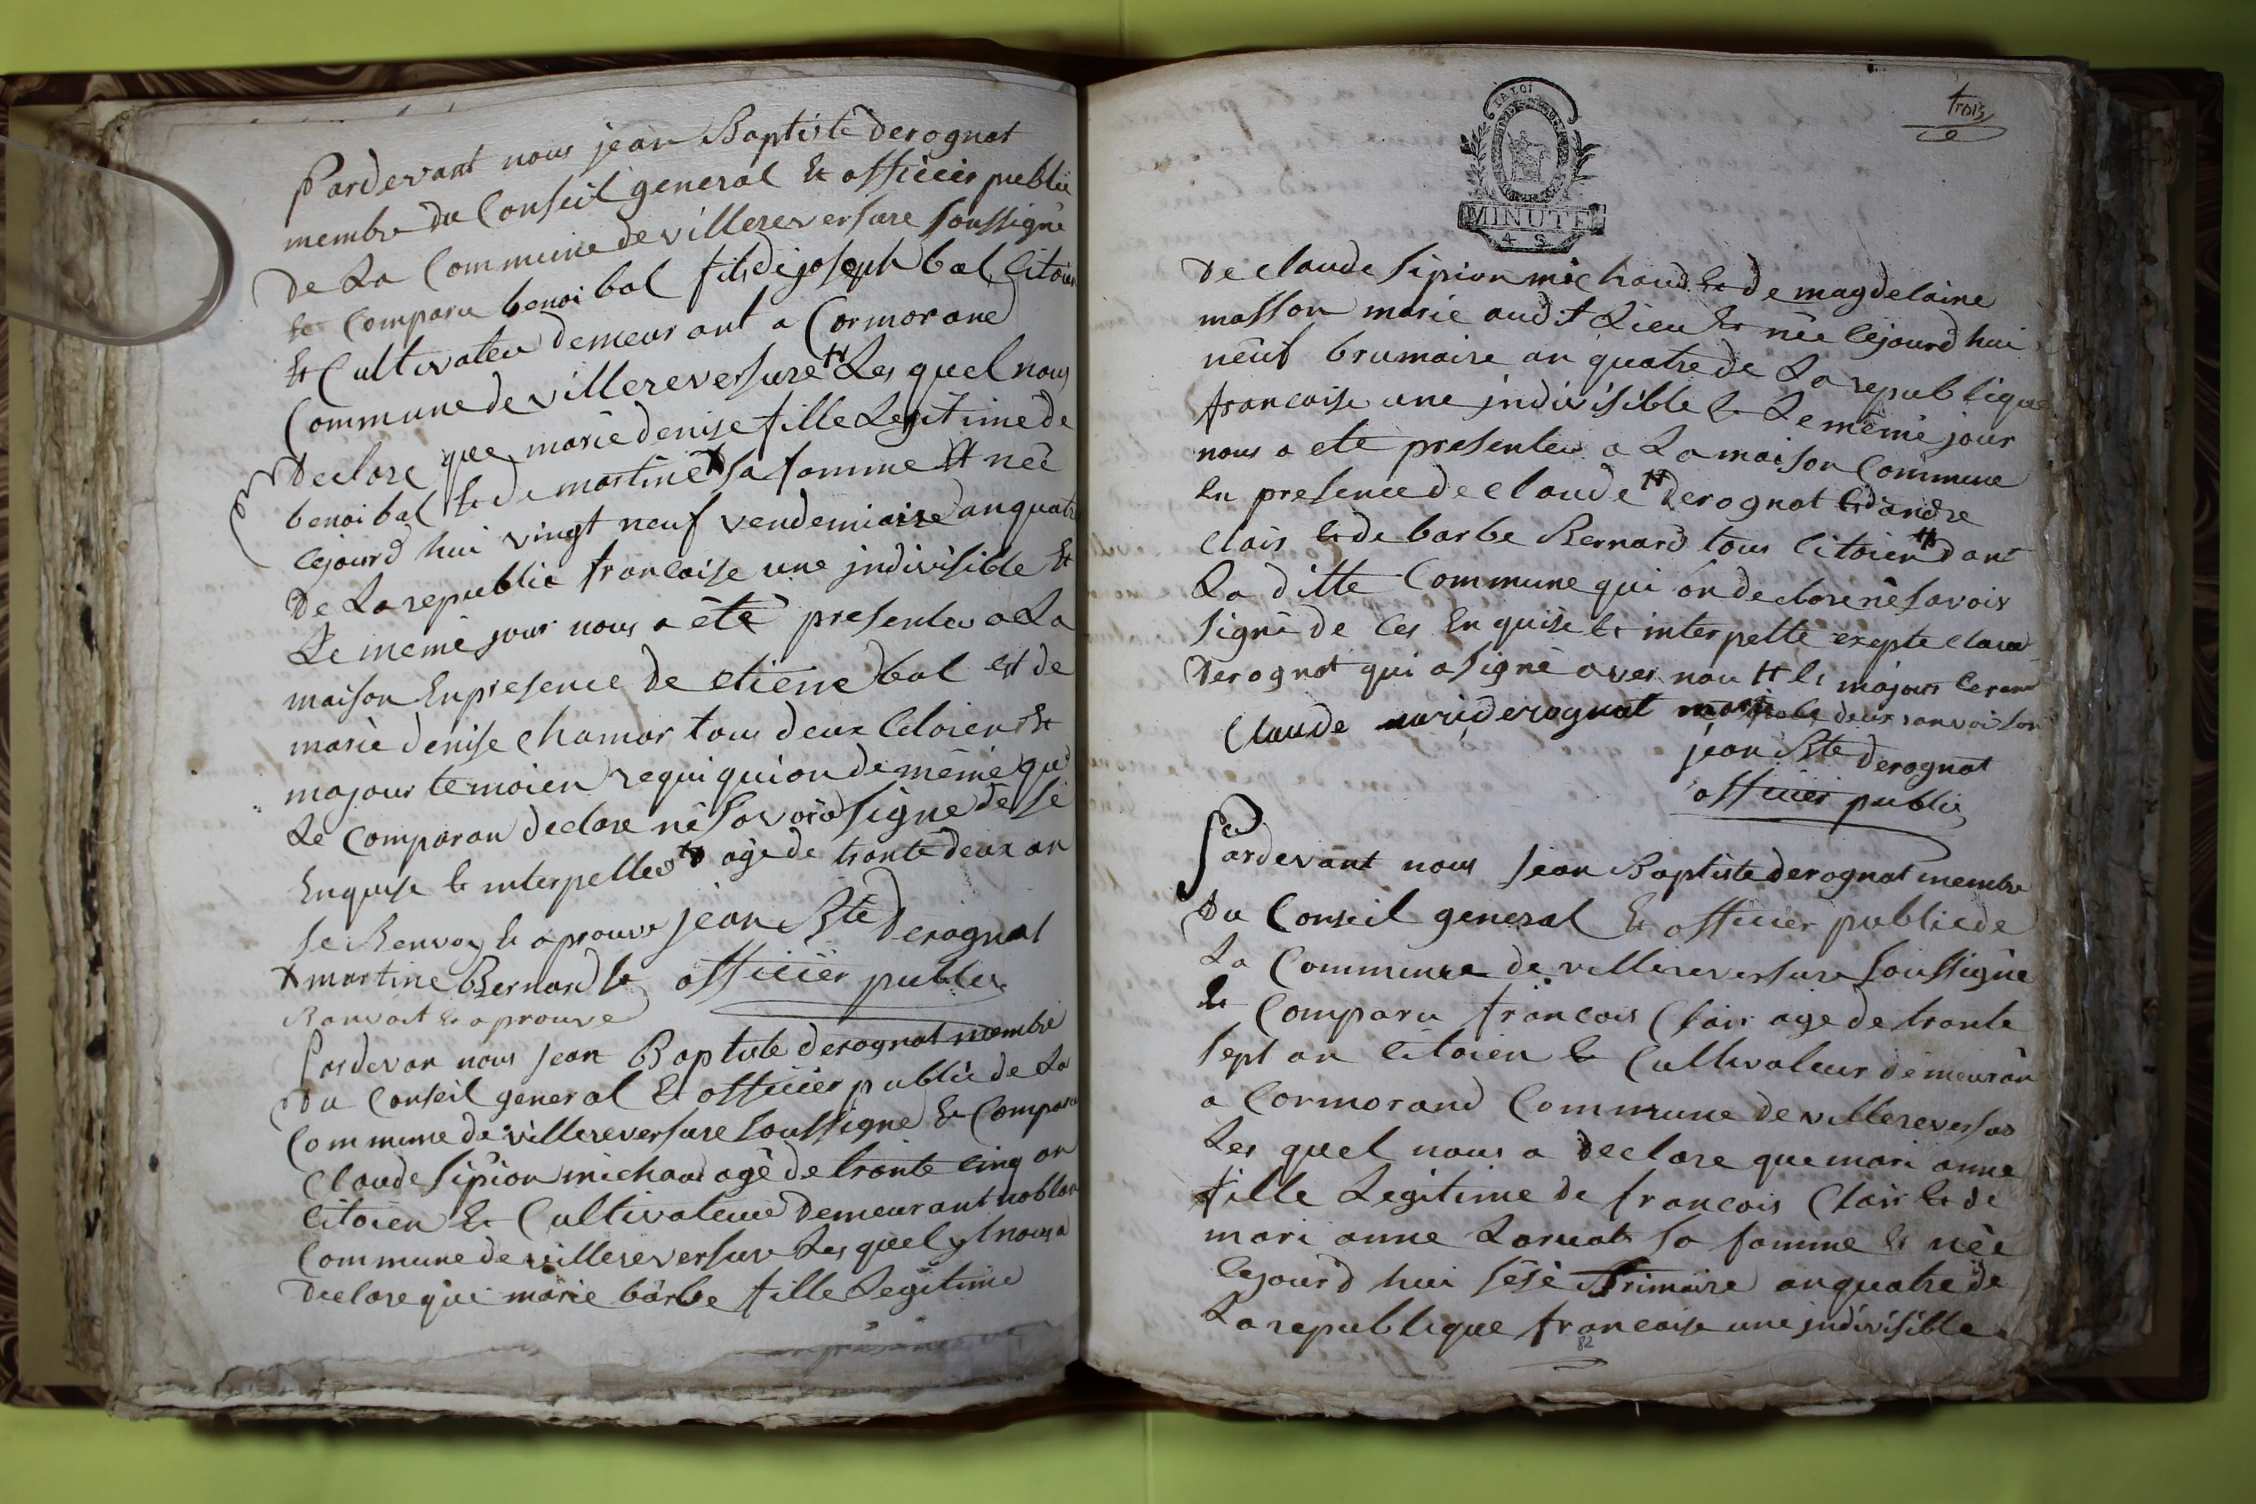 Pardevant nous jean Baptiste derognat
membre du Conseil general Et officier public
De La Commune de villereversure soussigné
Et Comparu benoi bal fils de joseph bal Citoien
Et Cultivateu demeurant a Cormorand
Commune de villereversure # Les quel nous
Declare que marie denise fille Legitime de
benoi bal Et de martine X sa famme Et neê
Cejourd hui vingt neuf vendemiaire an quatre
De La republic francaise une jndivisible Et
Le meme jour nous a été presenteu a La
maison En presence de etiene bal est de
marie denise Chamar tous deux Citoien Et
majour temoien requi qui on de même que
Le Comparan declare nê savoir signe de se
Enquise Et interpelleé # agê de trante deux an
se Renvoy Et aprouve jean Bte Derognat
X martine Bernard se officier public
Ranvoit Et aprouve
Pardevan nous jean Baptiste derognat membre
Du Conseil general Et officier public de La
Commune de villereversure soussigne Et Comparu
Claude sipion michaud agê de trante cinq an
Citoien Et Cultivateur demeurant noblan
Commune de villereversure Les quel nous a
Declare que marie barbe fille Legitime
trois
LA LOI
MINUTE
4 S
De claude sipion michaud Et de magdelaine
masson marie audit Lieu Et nêe Cejourd hui
neuf brumaire an quatre de La republique
francoise une jndivisible Et Le mêmê jour
nous a ete presenteu a La maison Commune
En presence de claude # Derognat Et d'andre
Clair Et de barbe Bernard tous Citoien # dant
La ditte Commune qui on declare nê savoir
signê de Ces Enquise Et interpellê exepte Claud
Derognat qui a signê avec nou # Et majour
Claude marie derognat deux ranvoi son
jean Bte derognat
officier public
Pardevant nous jean Baptiste derognat membre
Du Conseil general Et officier public de
La Commune de villereversure soussigne
Et Comparu francois Clair age de trante
sept an Citoien Et Cultivateur demeuran
a Cormorand Commune de villereversur
Les quel nous a declare que mari anne
fille Legitime de francois Clair Et de
mari anne sa famme Et nêe
Cejourd hui sêsê frimaire an quatre de
La republique francaise une jndivisible
82